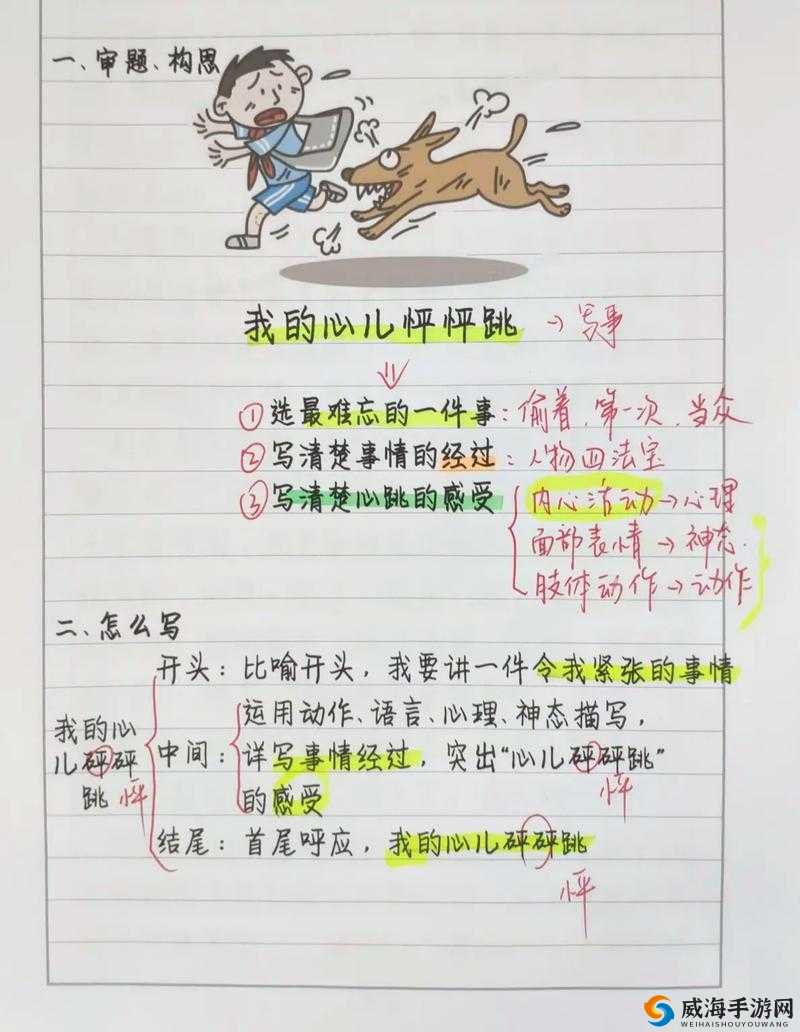 一、审题、构思
我的心儿怦怦跳 → 写事
①选最难忘的一件事：偷着、第一次、当众
②写清楚事情的经过：人物四法宝
③写清楚心跳的感受 内心活动→心理
面部表情→神态
肢体动作→动作
二、怎么写
开头：比喻开头，我要讲一件令我紧张的事情
我的心儿砰砰跳 怦
中间：运用动作、语言、心理、神态描写，
详写事情经过，突出“心儿砰砰跳”
怦
的感受
结尾：首尾呼应，我的心儿砰砰跳
怦
威海手游网
WEIHAISHOUYOUWANG